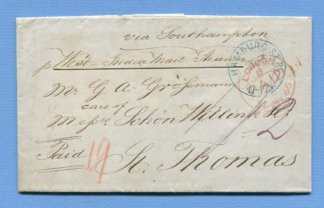 via Southampton
p West India Mail Steamer
Mr. G. A. Grossmann
care of
Messrs Schön Willink & Co
Paid 19
St. Thomas
HAMBURG
LONDON
PAID
2